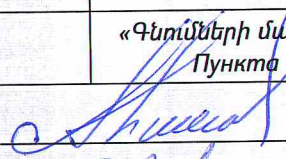 «Գնումների մա
Пункта